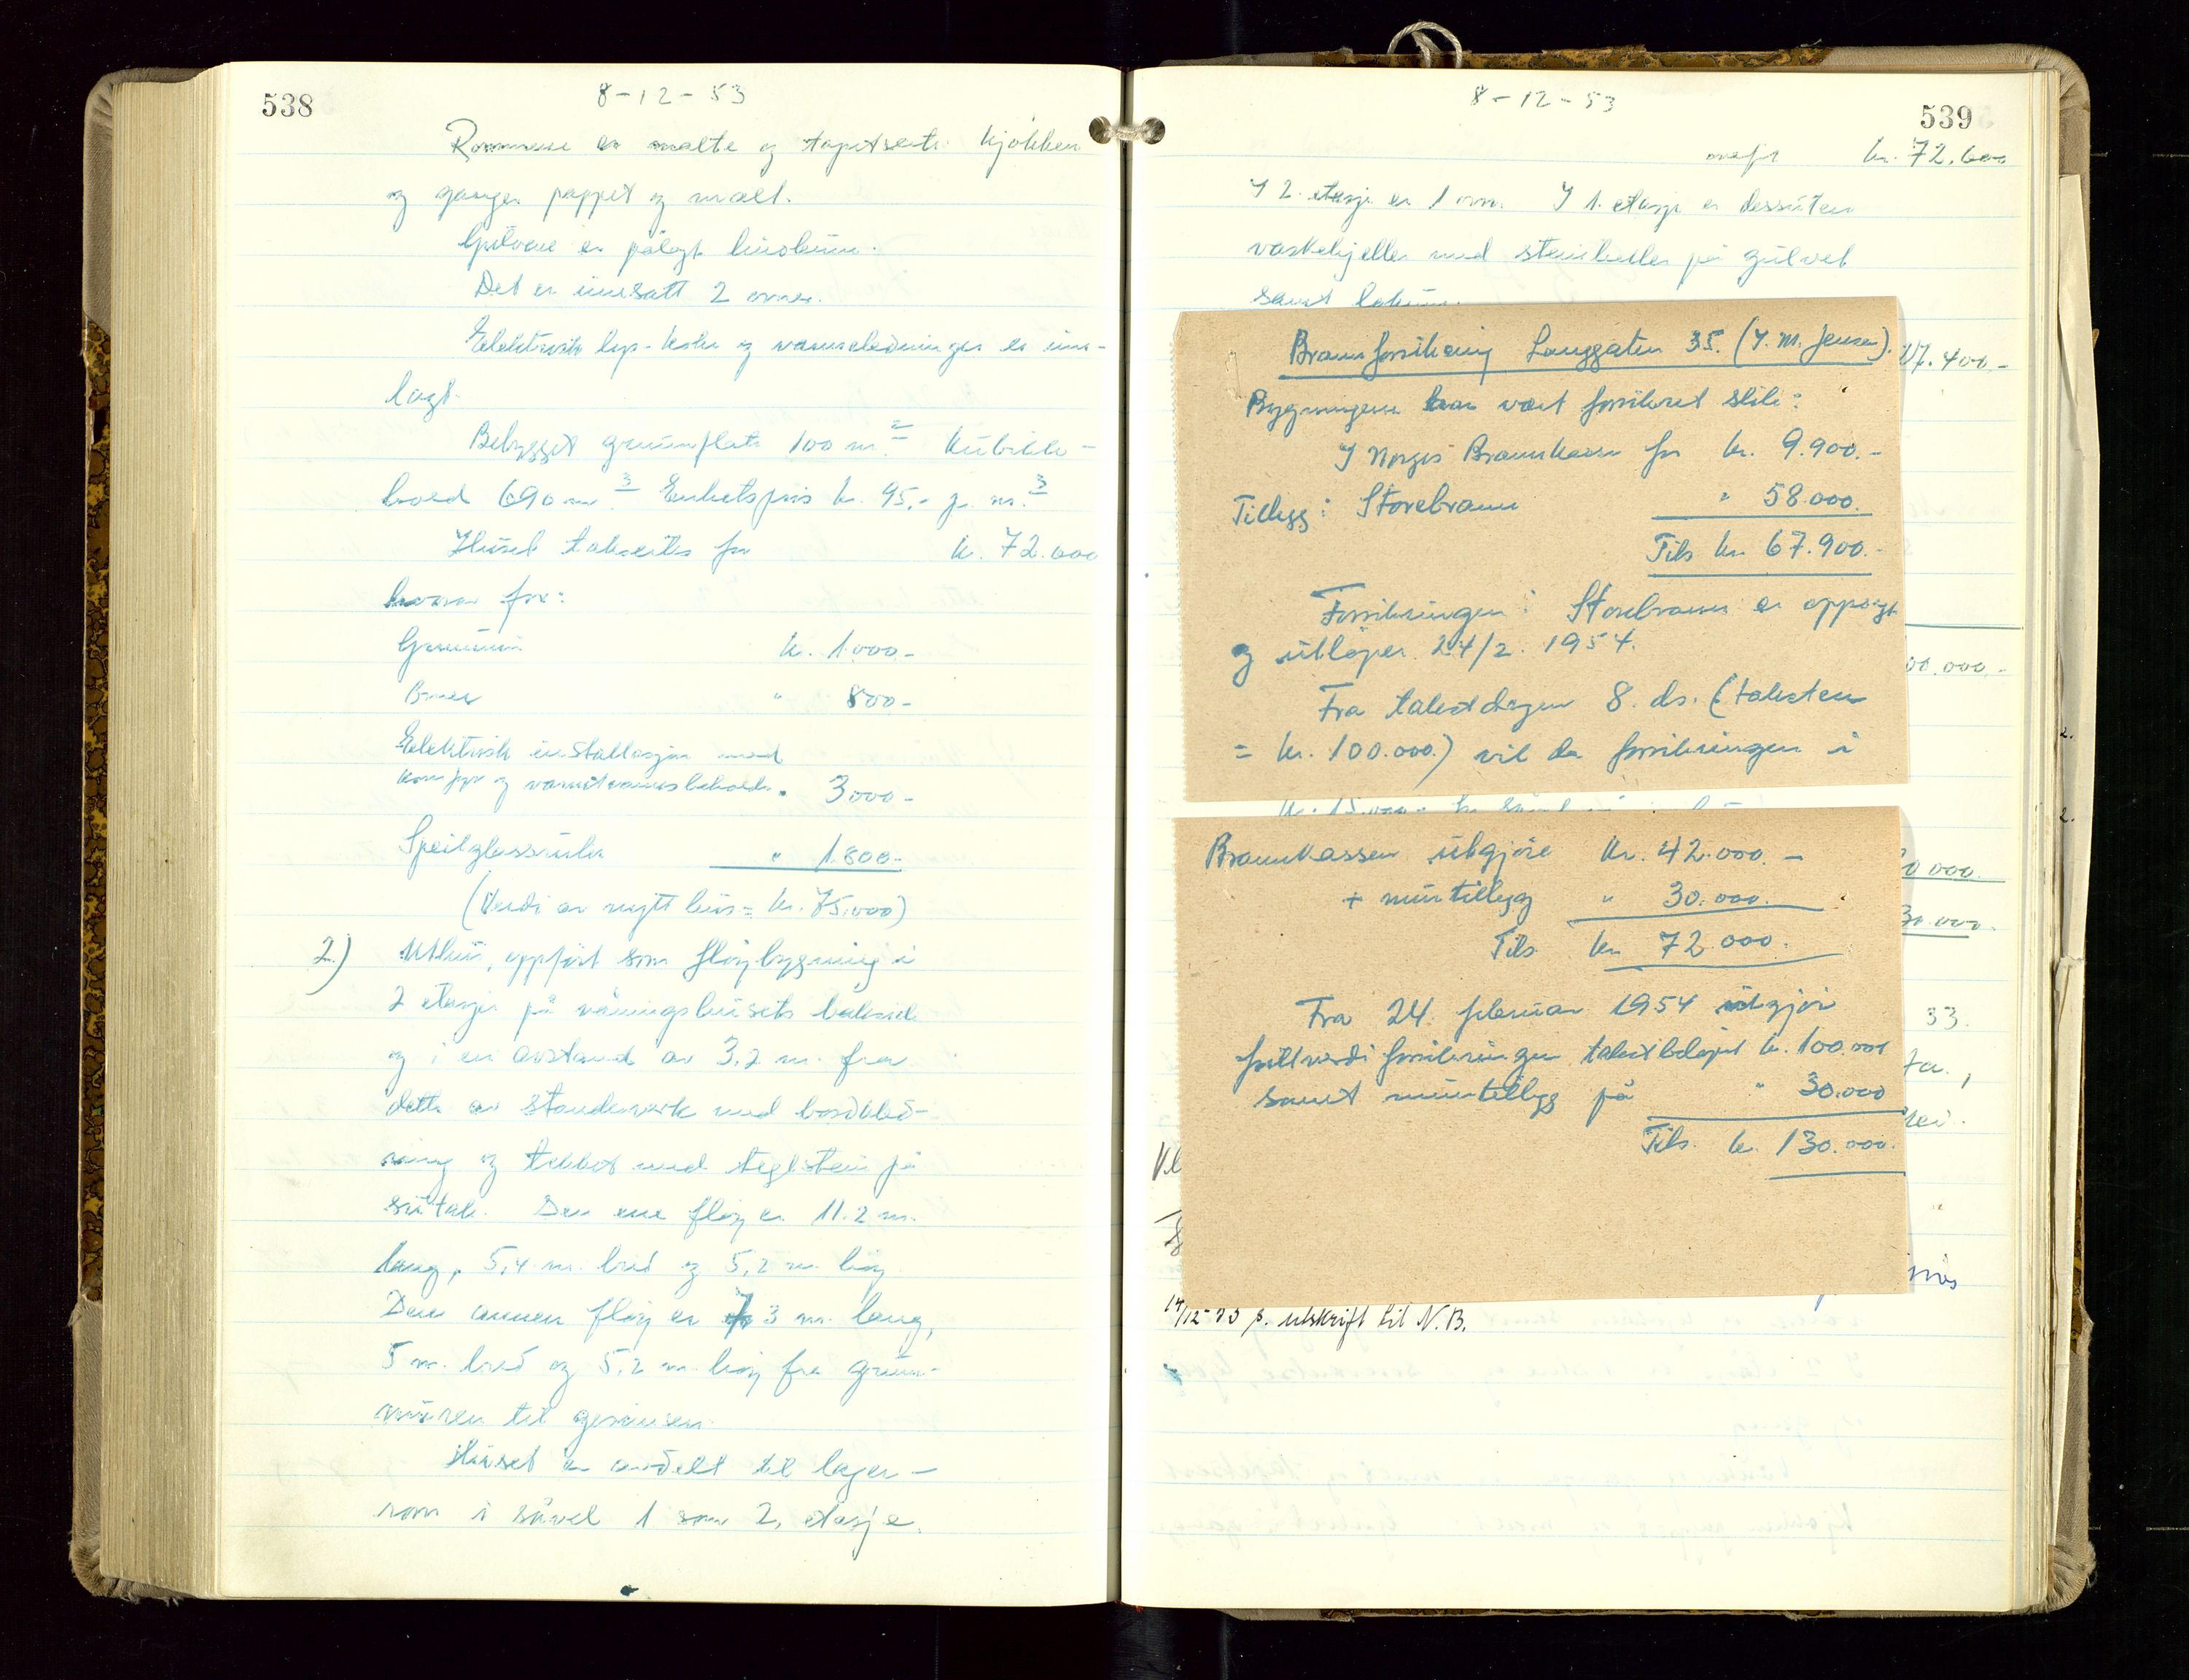 538
8-12-53
Rommene er malte og tapetserte. Kjøkken
og ganger pappet og malt.
Gulvene er pålagt linoleum.
Det er innsatt 2 ovner.
Elektrisk lys- koke og varmeledninger er inn-
lagt.
Bebygget grunnflate 100 m.² Kubikk-
hold 690 m.³ Enhetspris kr. 95,- pr. m.³
Huset takseres for kr. 72.600
hvorav for:
Grunnmur kr. 1.000.-
Ovner " 800.-
Elektrisk installasjon med
komfyr og varmtvannsbeholder " 3000.-
Speilglassruter " 1.800.-
(Verdi av nytt hus = kr. 75.000)
2) Uthus, oppført som fløybygning i
2 etasjer på våningshusets bakside
og i en avstand av 3,2 m. fra
dette av standerverk med bordkled-
ning og tekket med teglstein på
sutak. Den ene fløy er 11.2 m.
lang, 5,4 m. bred og 5,2 m. høy
Den annen fløy er 7,3 m. lang,
5 m. bred og 5,2 m. høy fra grunn-
muren til gesimsen.
Huset er avdelt til lager-
rom i såvel 1 som 2. etasje.
8-12-53
539
overf. kr. 72.600
I 2. etasje er 1 ovn. I 1. etasje er dessuten
vaskekjeller med steinheller på gulvet
samt
17.400.-
Brannforsikring Langgaten 35. (J. M. Jensen).
Bygningene har vært forsikret slik:
I Norges Brannkasse for kr. 9.900.-
Tillegg i Storebrann " 58.000.
Tils kr. 67.900.-
Forsikringen i Storebrann er oppsagt
og utløper 24/2. 1954.
Fra takstdagen 8. ds. (taksten
= kr. 100.000.) vil da forsikringen i
00.000.-
kr. 15.000
Brannkassen utgjøre kr. 42.000.-
+ murtillegg " 30.000.
Tils kr. 72.000.
Fra 24. februar 1954 utgjør
fullverdiforsikringen takstbeløpet kr. 100.000
samt murtillegg på " 30.000
Tils. kr. 130.000.
0.000.
30.000.
33.
14/12-53 s. utskrift til N.B.